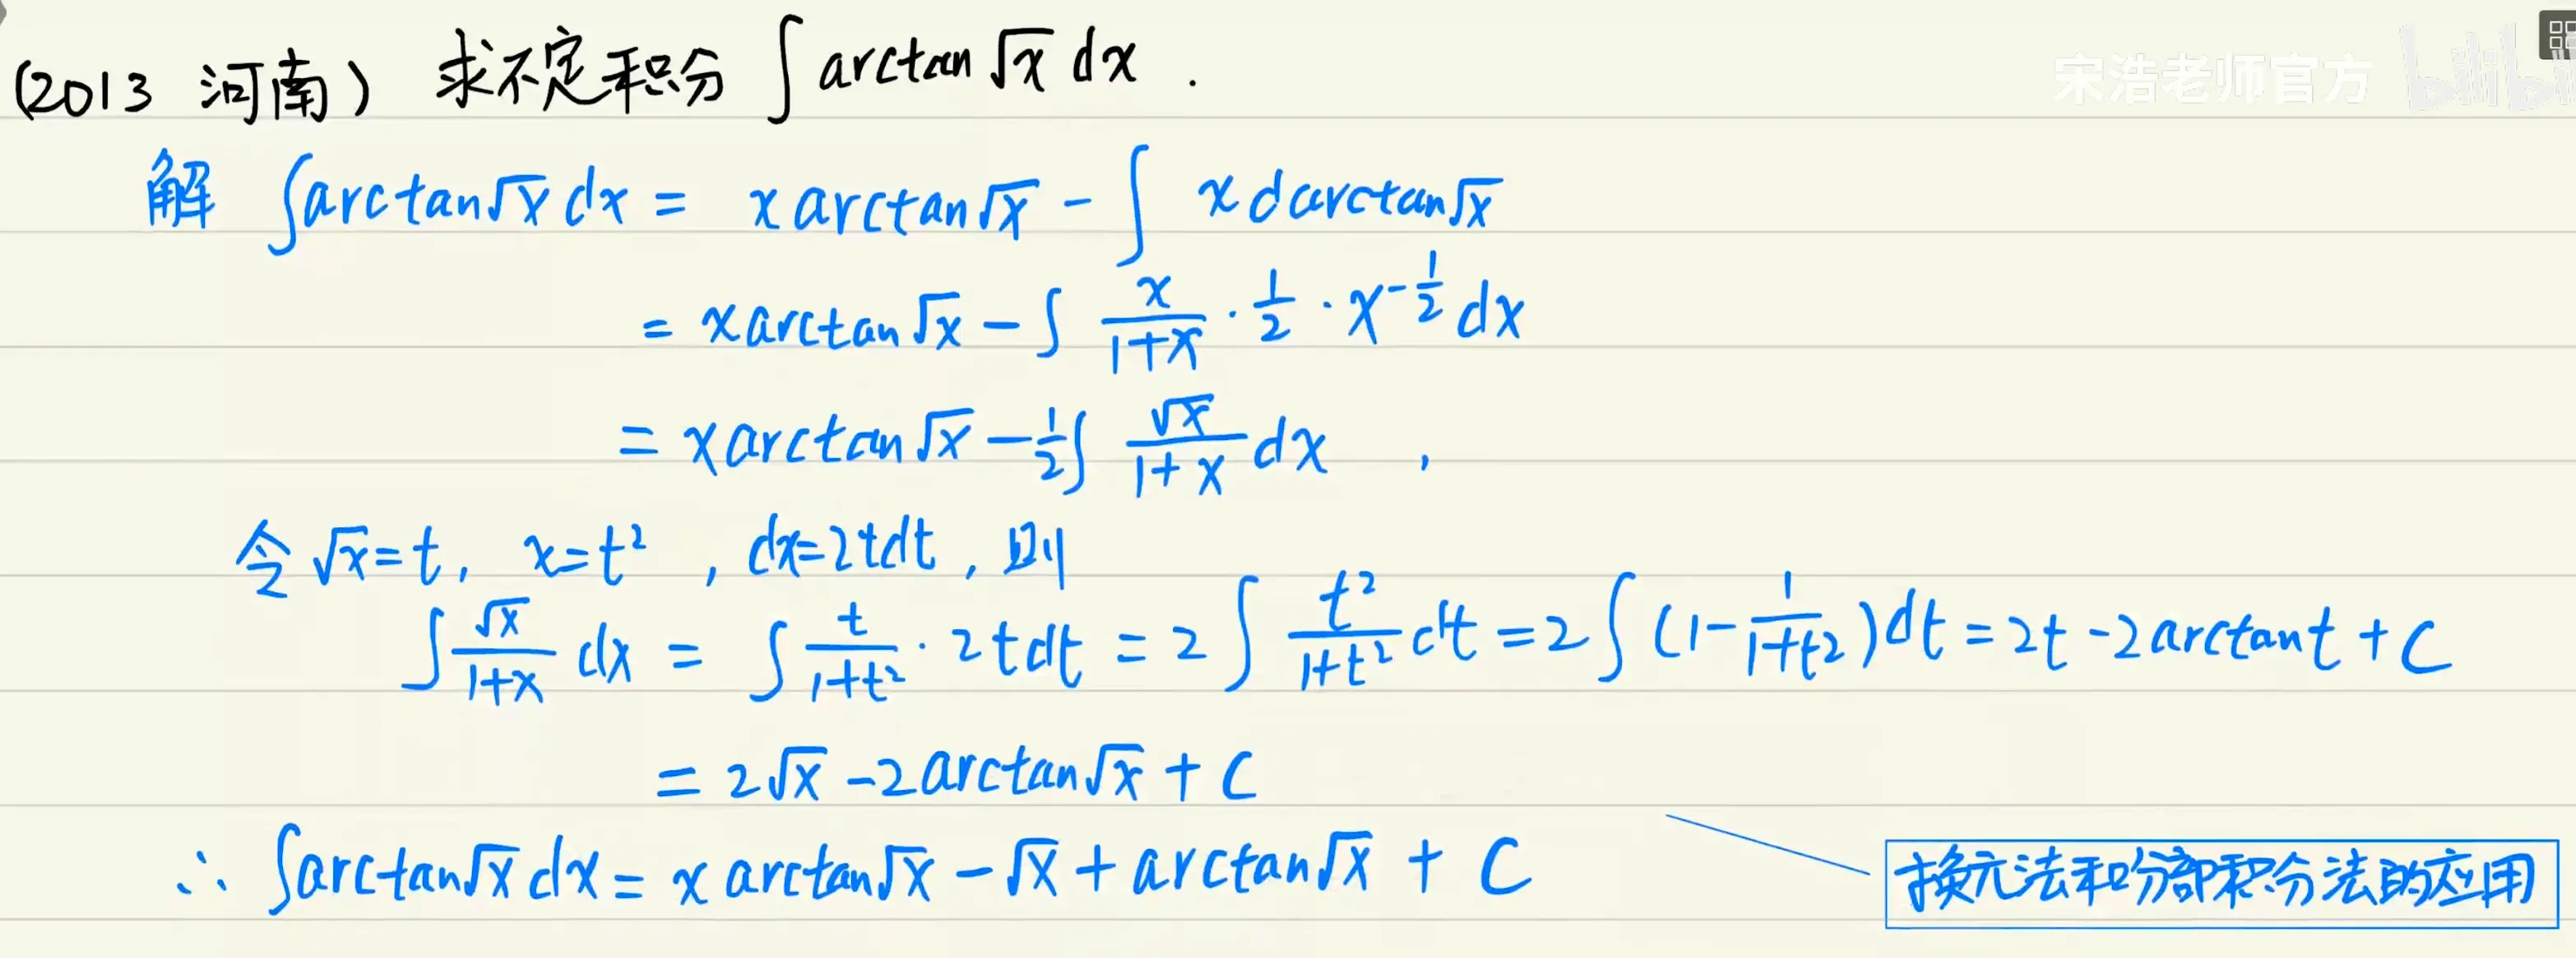 (2013 河南) 求不定积分 ∫ arctan √x dx .
宋浩老师官方 bilibili
解 ∫arctan√x dx = x arctan√x - ∫ x d arctan√x
= x arctan √x - ∫ x/(1+x) · 1/2 · x^(-1/2) dx
= x arctan √x - 1/2 ∫ √x/(1+x) dx ,
令 √x = t, x = t² , dx = 2tdt , 则
∫ √x/(1+x) dx = ∫ t/(1+t²) · 2tdt = 2 ∫ t²/(1+t²) dt = 2 ∫ (1 - 1/(1+t²)) dt = 2t - 2arctan t + C
= 2√x - 2arctan√x + C
∴ ∫arctan√x dx = x arctan√x - √x + arctan√x + C
换元法和分部积分法的应用